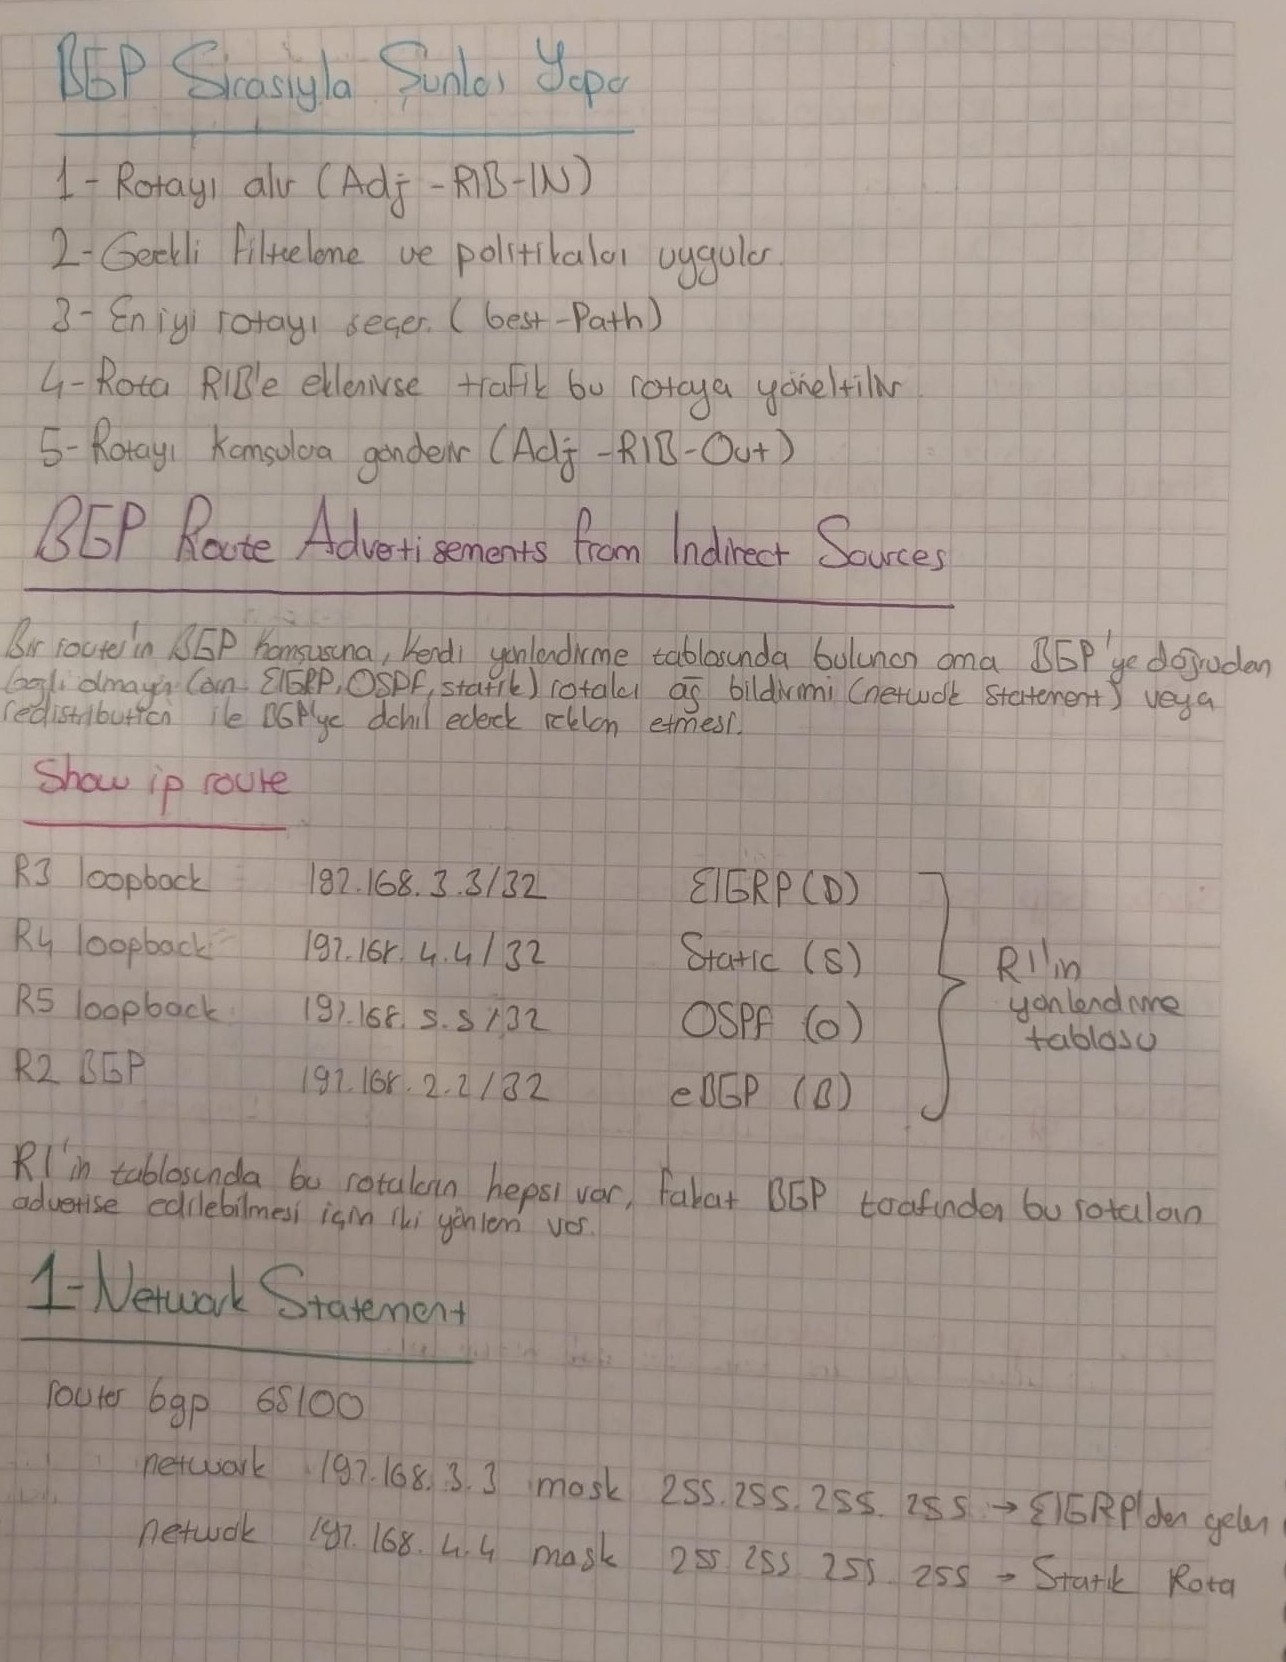 BGP Sırasıyla Şunları Yapar
1- Rotayı alır (Adj -RIB-IN)
2- Gerekli filtreleme ve politikaları uygular.
3- En iyi rotayı seçer. (best-Path)
4- Rota RIB'e eklenirse trafik bu rotaya yöneltilir
5- Rotayı Komşulara gönderir (Adj -RIB-Out)
BGP Route Advertisements from Indirect Sources
Bir router'ın BGP Komşusuna, kendi yönlendirme tablosunda bulunan ama BGP'ye doğrudan
bağlı olmayan (örn. EIGRP, OSPF, statik) rotaları ağ bildirimi (network statement) veya
redistribution ile BGP'ye dahil ederek reklam etmesi.
Show ip route
R3 loopback 192.168.3.3/32 EIGRP (D)
R4 loopback 192.168.4.4/32 Static (S)
R5 loopback 192.168.5.5/32 OSPF (O)
R2 BGP 192.168.2.2/32 eBGP (B)
R1'in
yönlendirme
tablosu
R1'in tablosunda bu rotaların hepsi var, fakat BGP tarafından bu rotaların
advertise edilebilmesi için iki yöntem var.
1- Network Statement
router bgp 65100
network 192.168.3.3 mask 255.255.255.255 → EIGRP'den gelen
network 192.168.4.4 mask 255.255.255.255 → Statik Rota